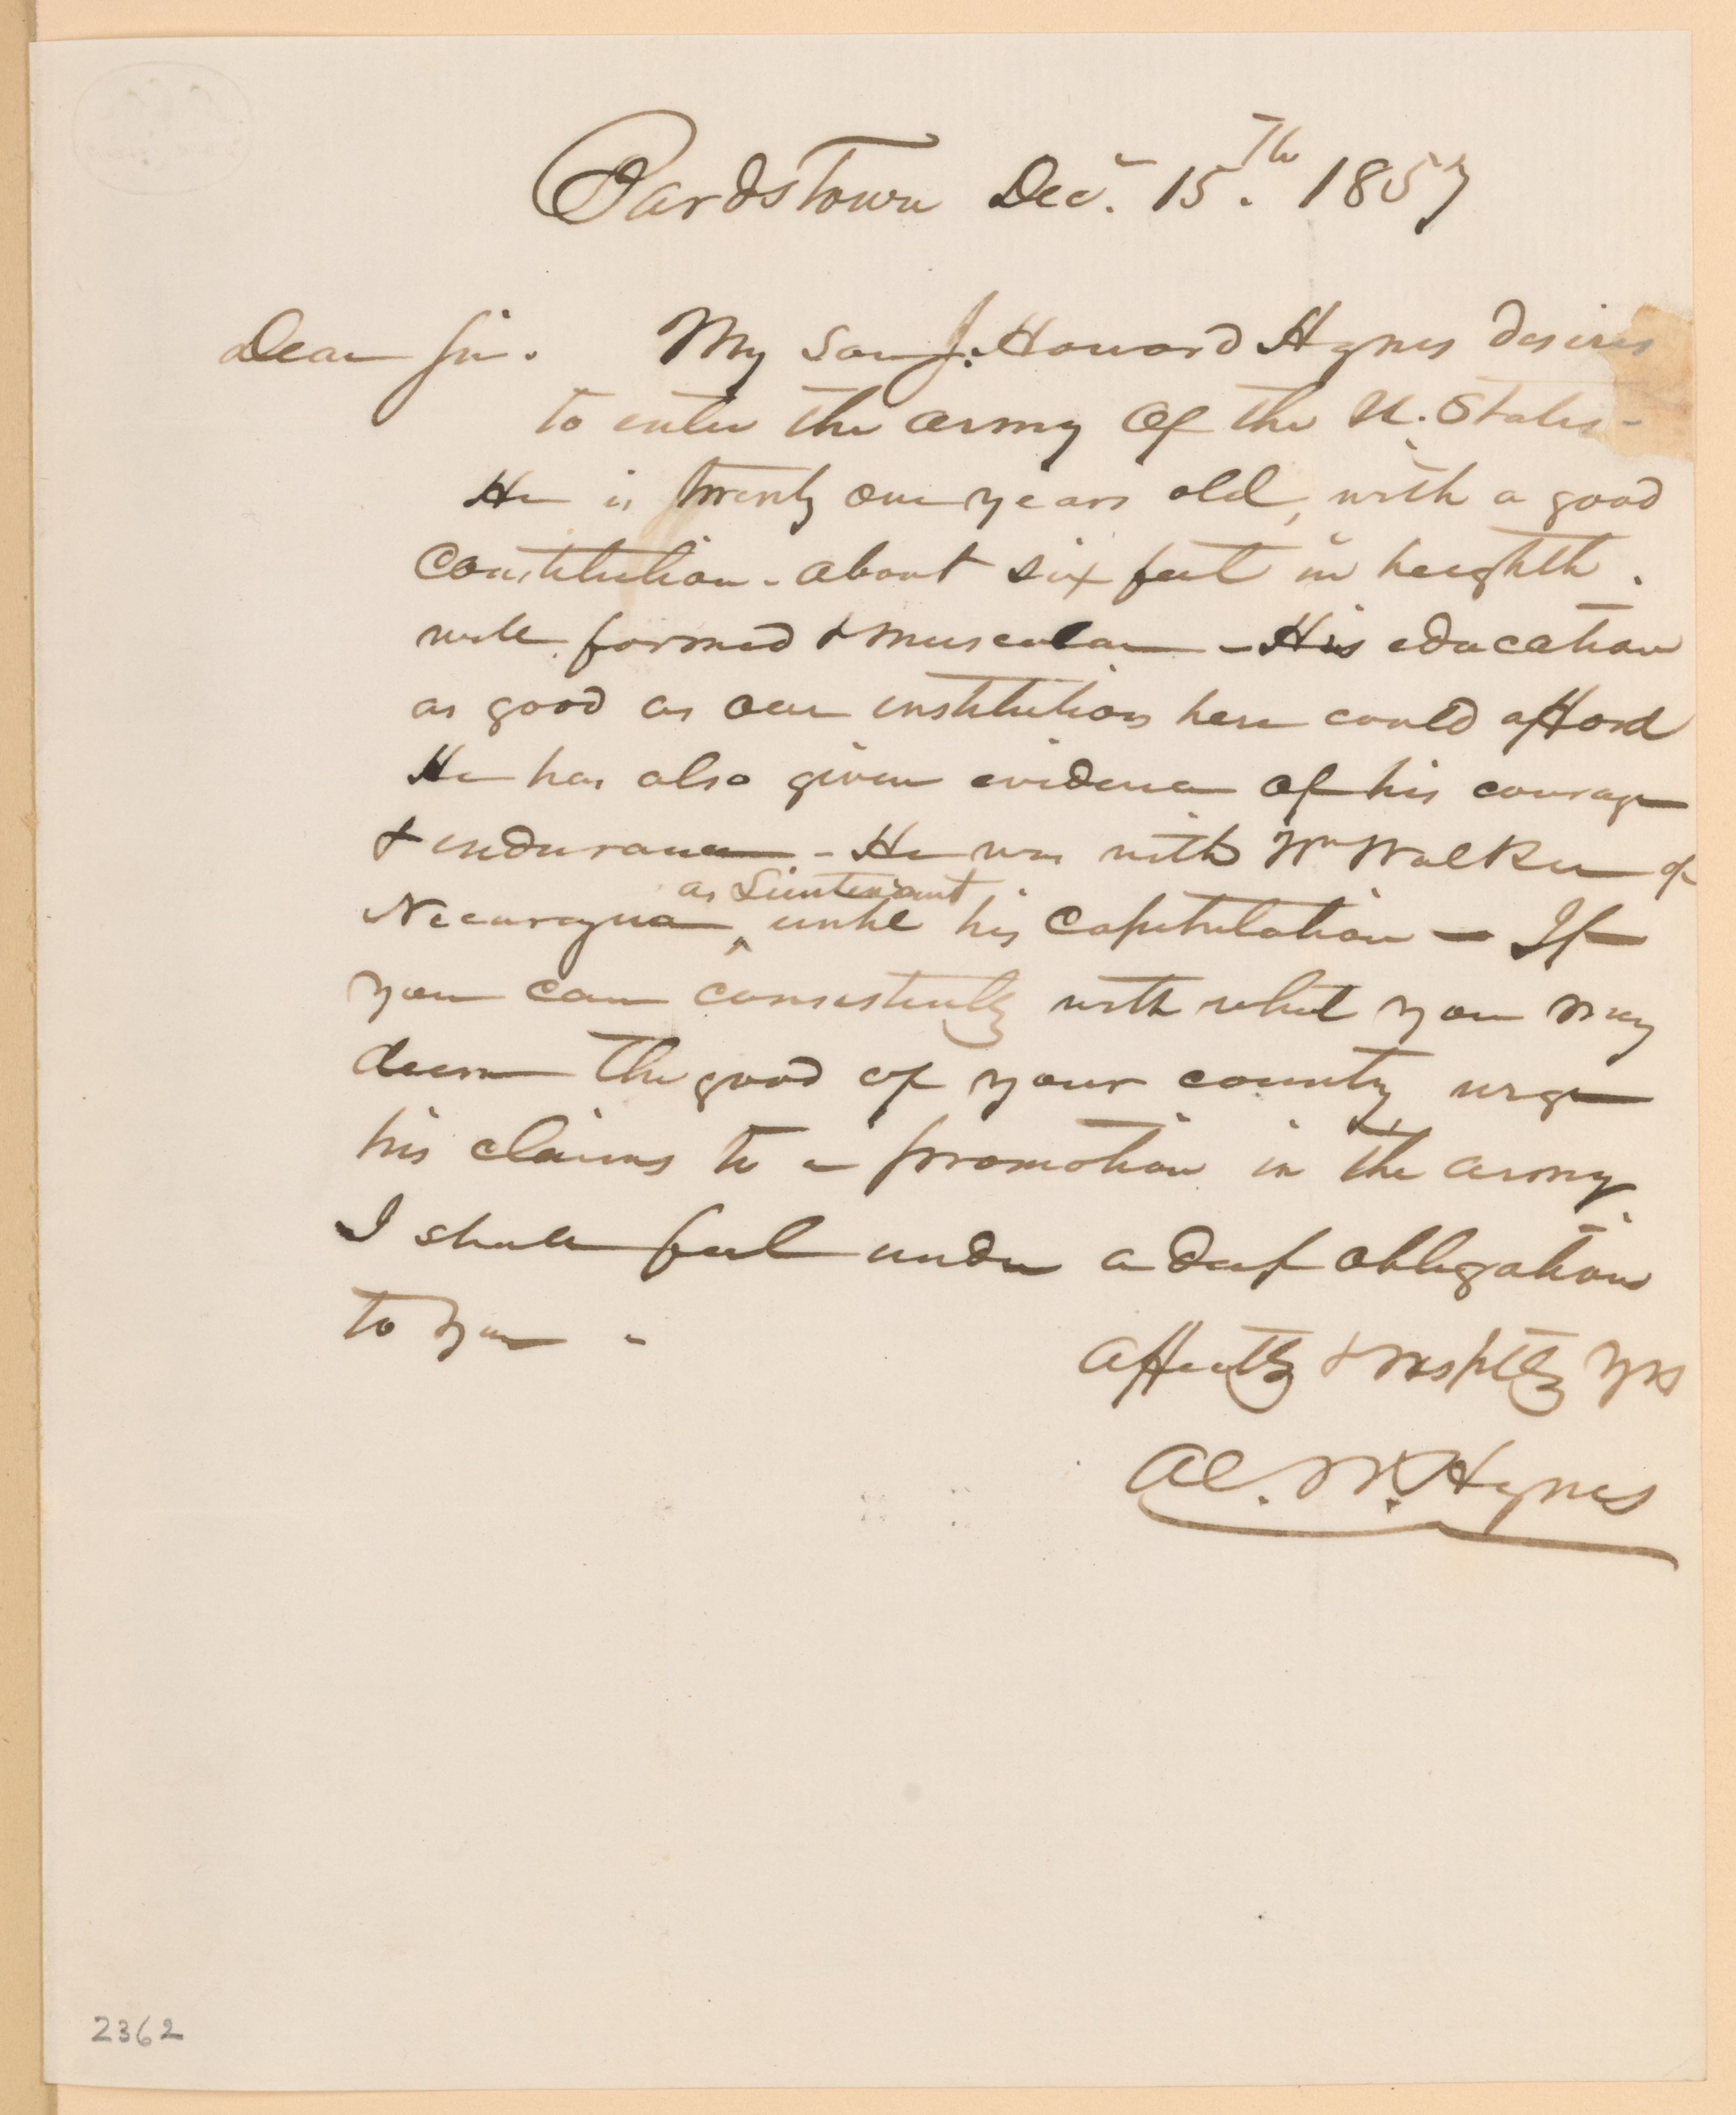 Bardstown Decr. 15th. 1857
Dear Sir. My son J. Howard Hynes desires
to enter the army of the U. States-
He is twenty one years old, with a good
Constitution - about six feet in heighth.
well formed & muscular - His education
as good as our institutions here could afford
He has also given evidence of his courage
& endurance - He was with Wm Walker of
as Lieutenant
Nicaragua ^ untill his Capitulation - If
you can consistently with what you may
deem the good of your country, urge
his claims to a promotion in the army.
I shall feel under a deep obligation
to you -
Affectly & respctly yrs
W. Hynes
2362